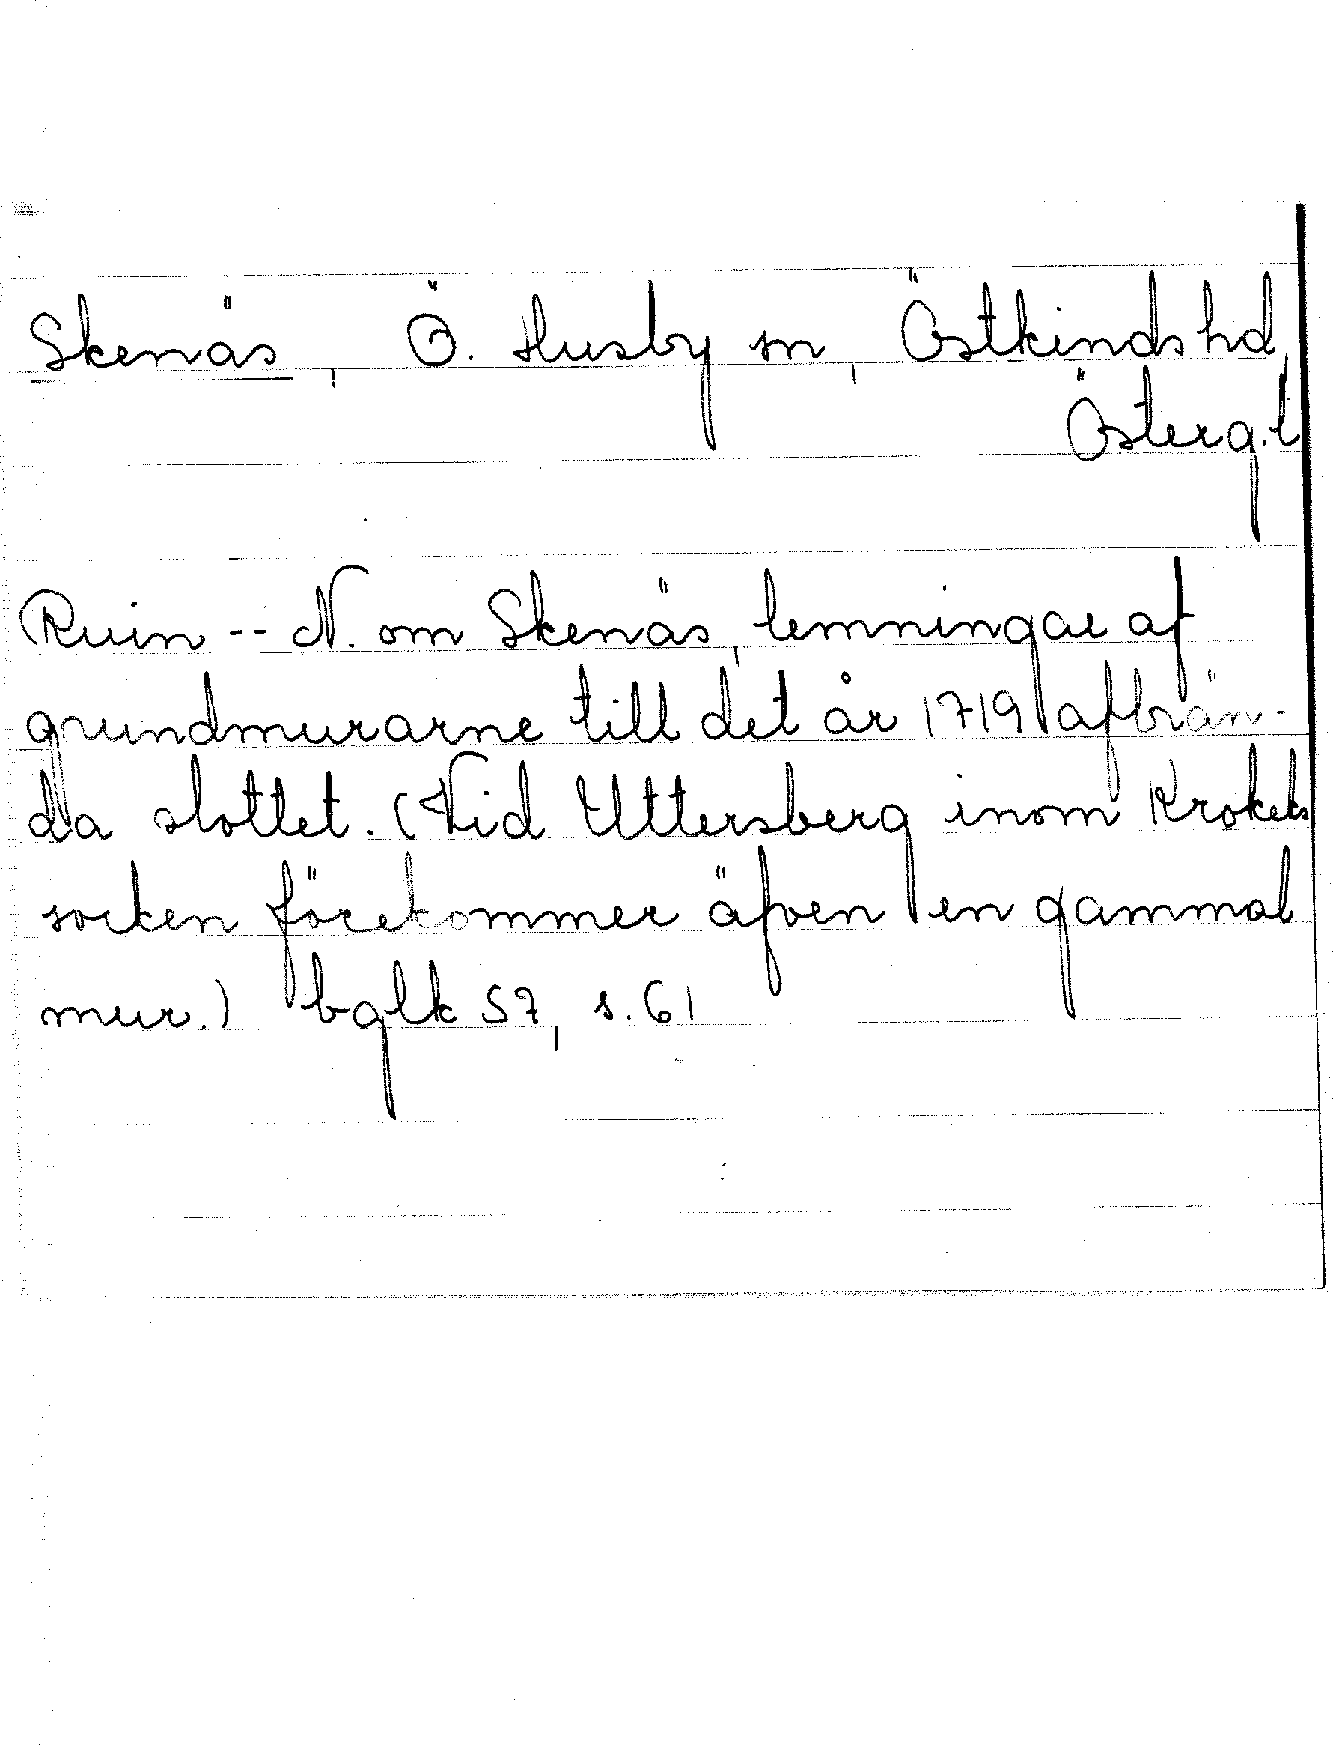 Skenäs, Ö. Husby sn, Östkinds hd,
Österg.l
Ruin -- N. om Skenäs, lemningar af
grundmurarne till det år 1719 afbrän-
da slottet. (Vid Uttersberg inom Krokeks
socken förekommer äfven en gammal
mur.) bglk 57, s. 61